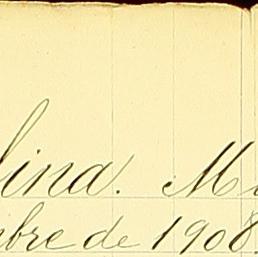 lina. M
bre de 1908